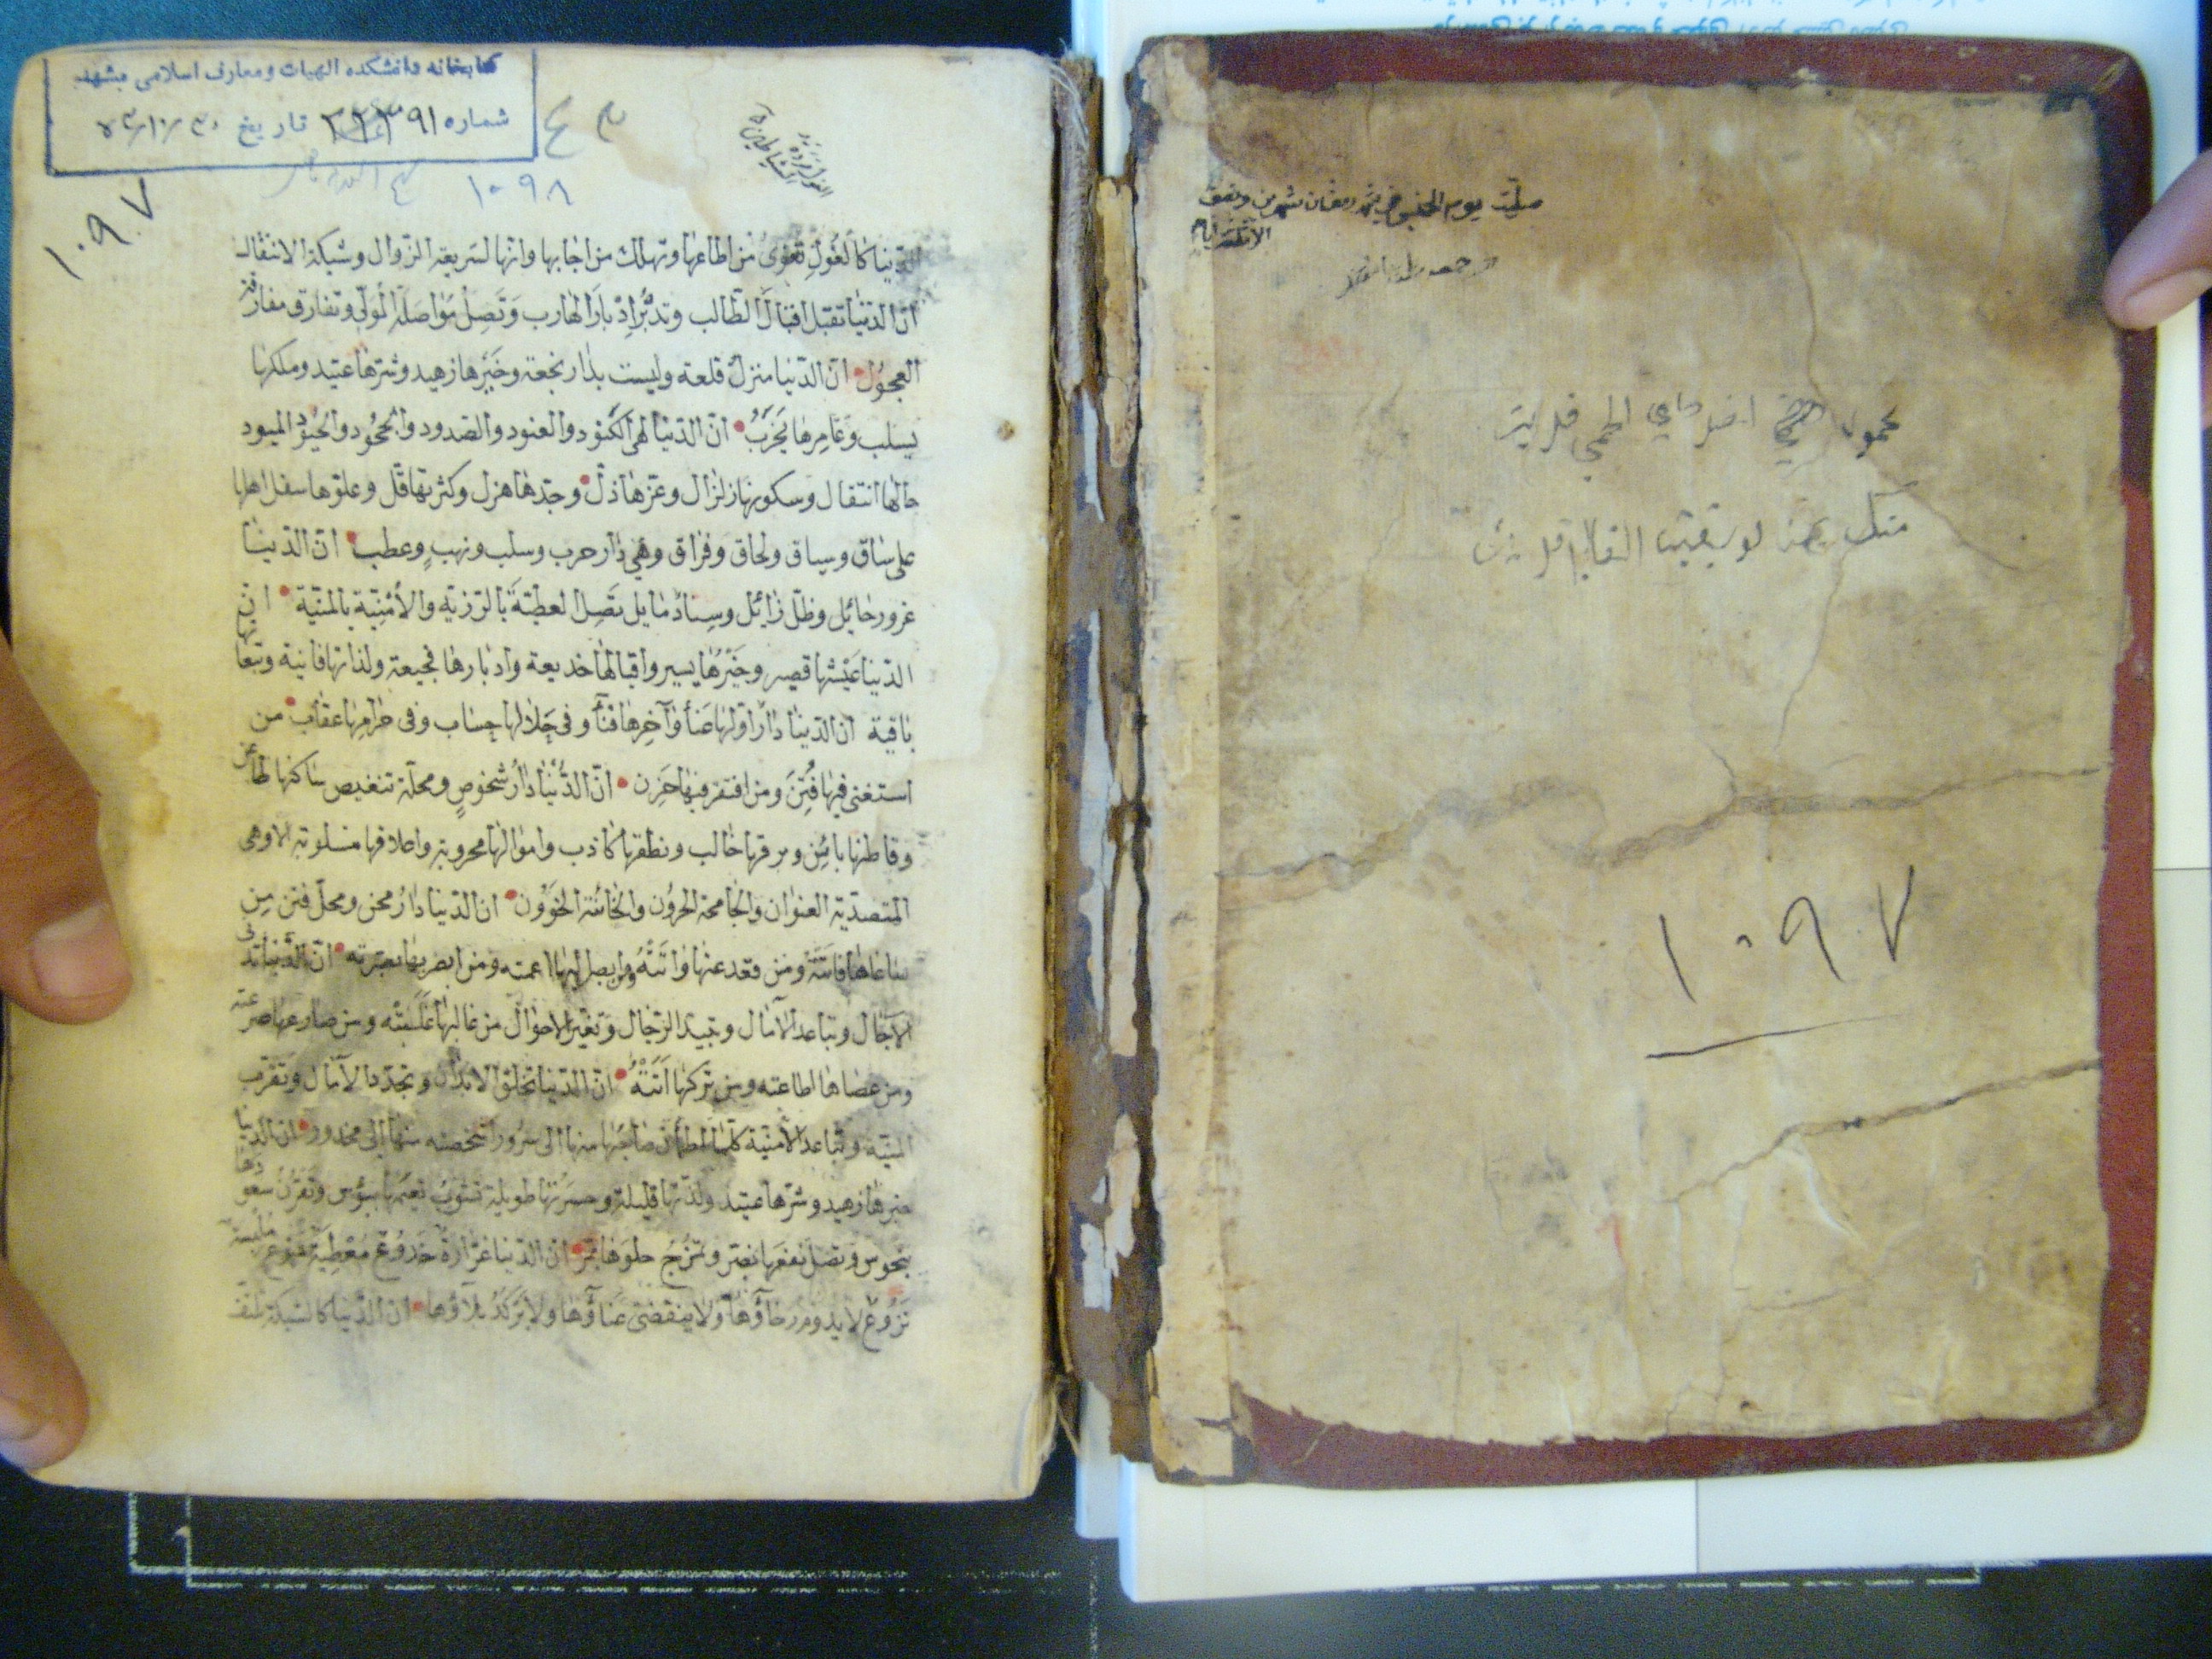 کتابخانه دانشکده الهیات و معارف اسلامی مشهد
شماره ۲۲۳۹۱ تاریخ
۱۰۹۸
۱۰۹۷
الدّنيا كالغُولِ تُغوى من اطاعها وتهلك من اجابها وانّها لسَريعة الزّوال وشيكة الانتقال
انّ الدّنيا تقبل اقبال الطّالب وتدبُر اِدبار الهارب وتَصِل مواصلة المَلول وتفارق مفارقة
العجول انّ الدّنيا منزل قلعة وليست بدار نجعة وخَيرها زهيد وشرّها عتيد وملكها
يسلب وعامِرها يخرب انّ الدّنيا لهى الكنود والعنود والصّدود والجحُود والحيود الميود
حالها انتقال وسكونها زلزال وعزّها ذلّ وجدّها هزل وكثرتها قلّ وعلوّها سفل اهلها
على ساق وسياق ولحاق وفراق وهي دار حرب وسلب ونهبٍ وعطب انّ الدّنيا
غرور حايل وظلّ زايل وسِناد مايل تَصِل العطيّة بالرّزية والأمنِيّة بالمنيّة انّ
الدّنيا عَيشها قصير وخَيرُها يسير واقبالها خديعة وادبارها فجيعة ولذاتها فانية وتبعاتها
باقية انّ الدّنيا دار اوّلها عَنأ وآخِرها فنآ وفى حَلالها حِساب وفى حَرامِها عقاب من
استغنى فيها فُتِنَ ومن افتقر فيها حَزِن انّ الدُّنيا دارُ شخوصٍ ومحلّة تنغيص ساكنها ظاعن
وقاطنها بائِن وبرقها خالب ونطقها كاذب واموالها محروبة واعلاقها مسلوبة الا وهى
المتصدّية العنوان والجامحة الحرُون والخائنة الخَوُون انّ الدّنيا دارُ محن ومحلّ فتن مِن
ساعاها فاتَتْهُ ومن قعد عنها واتَتْهُ ومن ابصر اليها اعمته ومن ابصر بها بصّرته انّ الدُّنيا تدنى
الآجال وتباعد الآمال وتبيد الرّجال وتغيّر الاحوال من غالبها غَلَبته ومن صارعها صرعته
ومن عصاها اطاعته ومن تركها اَتَتْهُ انّ الدّنيا تخلق الابدان وتجدّد الآمال وتقرّب
المنيّة وتباعد الامنيّة كلّما اطمأنّ صاحبُها منها الى سُرور اشخصته منها الى محذور انّ الدّنيا
خيرها زهيد وشرّها عتيد ولذّتها قليلة وحسرتها طويلة تشوب نعيمها ببؤس وتقرنُ سعودها
بنحوس وتصل نفعها بضرّ وتمزُج حلوَها بمرّ انّ الدّنيا غرّارة خَدُوع مُعْطِيَة مَنوع مُلبسة
نَزُوع لا يدوم رخاؤُها ولا ينقضى عَناؤُها ولا يركُدُ بلاؤُها انّ الدّنيا كالشبكة تلتفّ
۱۰۹۷